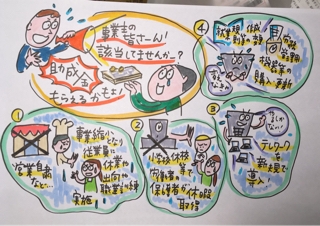 事業主の
皆さーん!
該当してませんかー?
助成金
もらえるかもよ!
①
営業自粛
など…
事業縮小なり
従業員に
休業や
出向や
職業訓練
実施
②
小学校休校
等で
労働者の
保護者が
休暇
取得
③
テレワークを
新規で
導入!
④
購入・更新